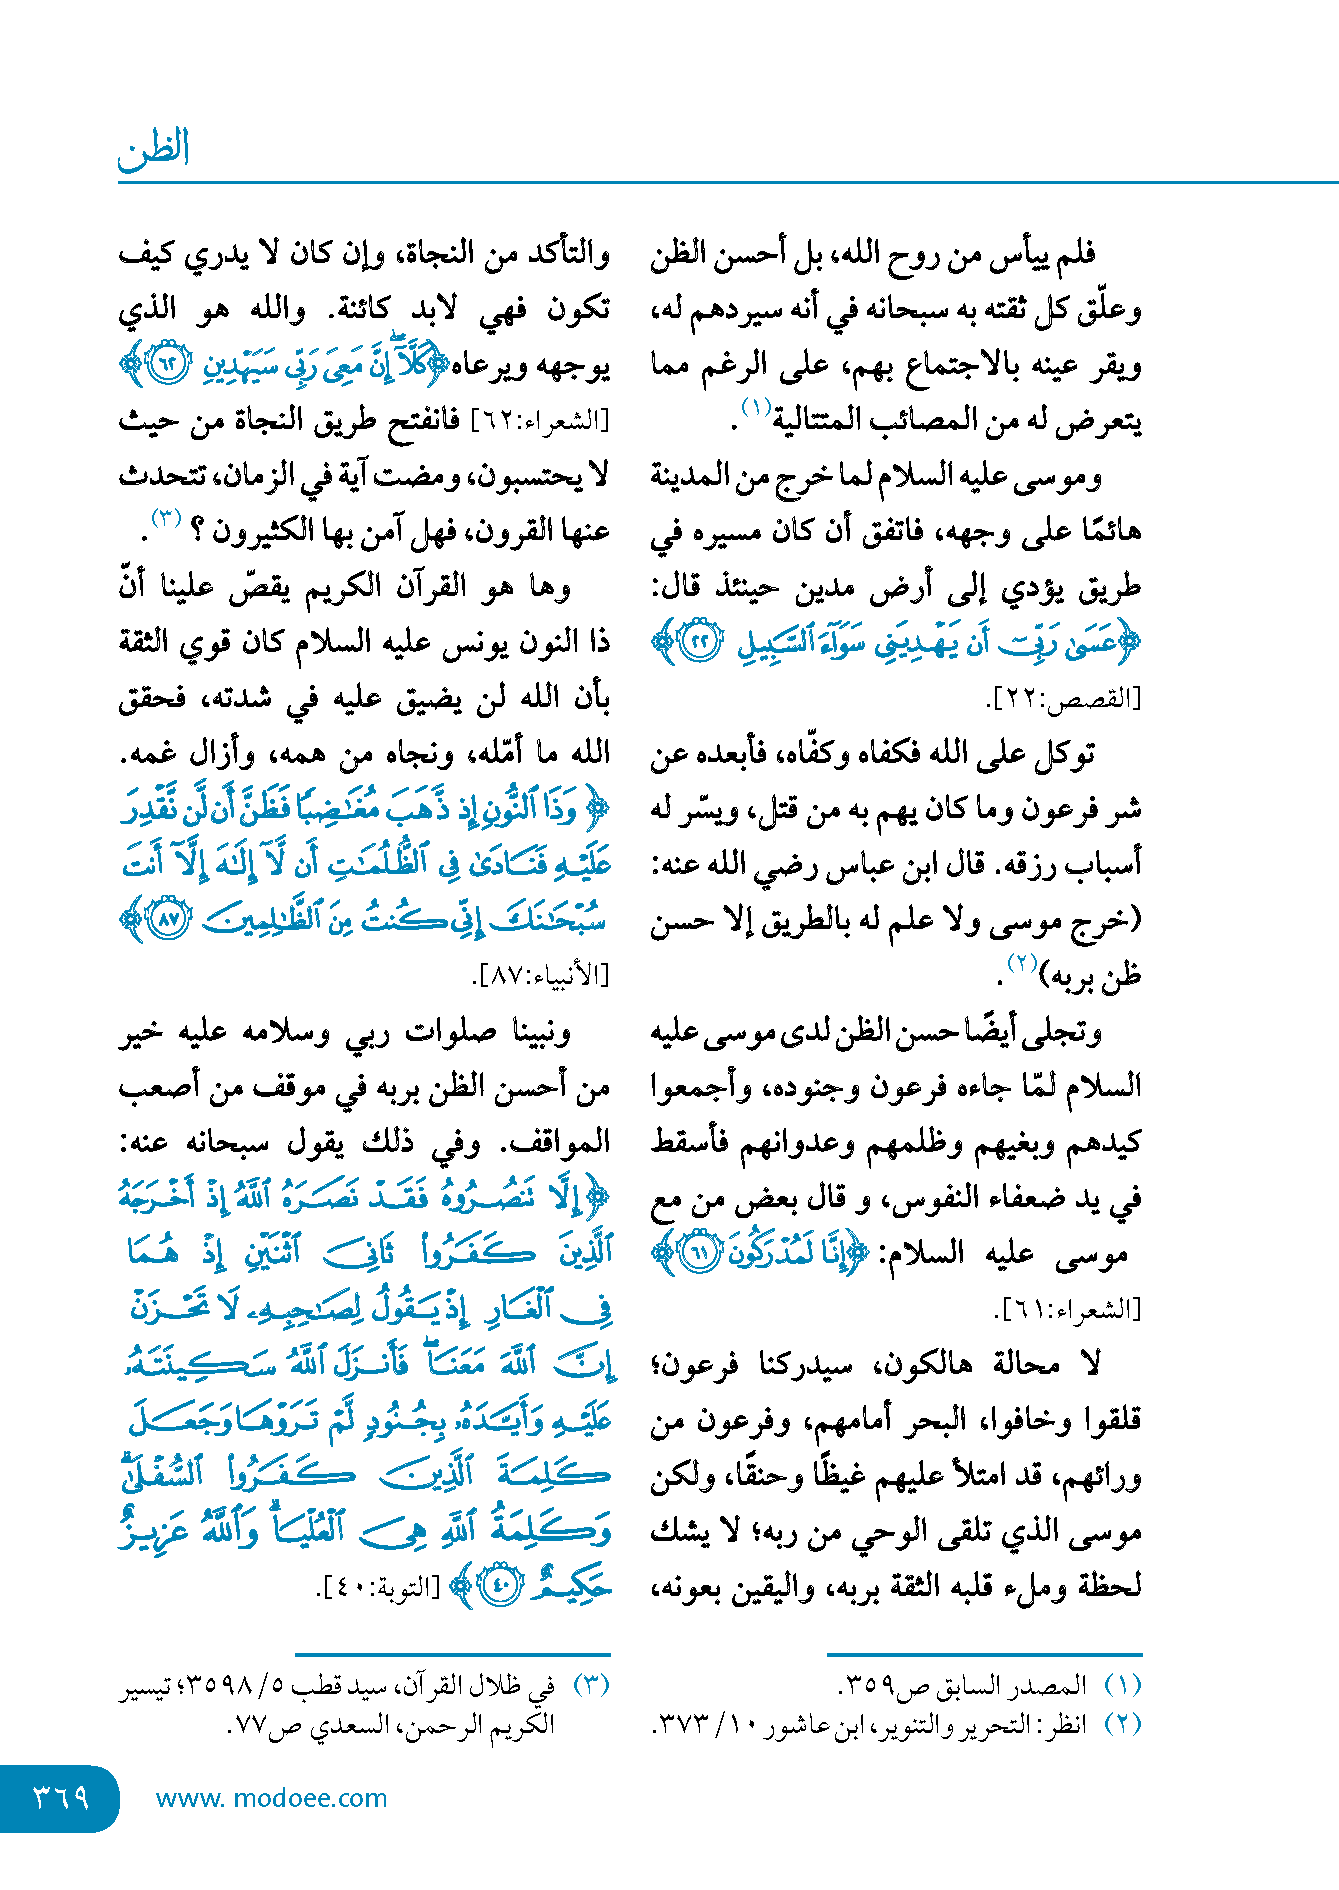 الظن
فلم ييأس من روح الله، بل أحسن الظن
وعلّق كل ثقته به سبحانه في أنه سيردهم له،
ويقر عينه بالاجتماع بهم، على الرغم مما
يتعرض له من المصائب المتتالية(١).
وموسى عليه السلام لما خرج من المدينة
هائمًا على وجهه، فاتفق أن كان مسيره في
طريق يؤدي إلى أرض مدين حينئذ قال:
﴿عَسَىٰ رَبِّىٓ أَن يَهْدِيَنِى سَوَآءَ ٱلسَّبِيلِ ٢٢﴾
[القصص:٢٢].
توكل على الله فكفاه وكفّاه، فأبعده عن
شر فرعون وما كان يهم به من قتل، ويسّر له
أسباب رزقه. قال ابن عباس رضي الله عنه:
(خرج موسى ولا علم له بالطريق إلا حسن
ظن بربه)(٢).
وتجلى أيضًا حسن الظن لدى موسى عليه
السلام لمّا جاءه فرعون وجنوده، وأجمعوا
كيدهم وبغيهم وظلمهم وعدوانهم فأسقط
في يد ضعفاء النفوس، و قال بعض من مع
موسى عليه السلام: ﴿إِنَّا لَمُدْرَكُونَ ٦١﴾
[الشعراء:٦١].
لا محالة هالكون، سيدركنا فرعون؛
قلقوا وخافوا، البحر أمامهم، وفرعون من
ورائهم، قد امتلأ عليهم غيظًا وحنقًا، ولكن
موسى الذي تلقى الوحي من ربه؛ لا يشك
لحظة وملء قلبه الثقة بربه، واليقين بعونه،
والتأكد من النجاة، وإن كان لا يدري كيف
تكون فهي لابد كائنة. والله هو الذي
يوجهه ويرعاه﴿كَلَّآ ۖ إِنَّ مَعِىَ رَبِّى سَيَهْدِينِ ٦٢﴾
[الشعراء:٦٢] فانفتح طريق النجاة من حيث
لا يحتسبون، ومضت آية في الزمان، تتحدث
عنها القرون، فهل آمن بها الكثيرون ؟ (٣).
وها هو القرآن الكريم يقصّ علينا أنّ
ذا النون يونس عليه السلام كان قوي الثقة
بأن الله لن يضيق عليه في شدته، فحقق
الله ما أمّله، ونجاه من همه، وأزال غمه.
﴿وَذَا ٱلنُّونِ إِذ ذَّهَبَ مُغَٰضِبًا فَظَنَّ أَن لَّن نَّقْدِرَ
عَلَيْهِ فَنَادَىٰ فِى ٱلظُّلُمَٰتِ أَن لَّآ إِلَٰهَ إِلَّآ أَنتَ
سُبْحَٰنَكَ إِنِّى كُنتُ مِنَ ٱلظَّٰلِمِينَ ٨٧﴾
[الأنبياء:٨٧].
ونبينا صلوات ربي وسلامه عليه خير
من أحسن الظن بربه في موقف من أصعب
المواقف. وفي ذلك يقول سبحانه عنه:
﴿إِلَّا تَنصُرُوهُ فَقَدْ نَصَرَهُ ٱللَّهُ إِذْ أَخْرَجَهُ
الَّذِينَ كَفَرُوا۟ ثَانِىَ ٱثْنَيْنِ إِذْ هُمَا
فِى ٱلْغَارِ إِذْ يَقُولُ لِصَٰحِبِهِۦ لَا تَحْزَنْ
إِنَّ ٱللَّهَ مَعَنَا ۖ فَأَنزَلَ ٱللَّهُ سَكِينَتَهُۥ
عَلَيْهِ وَأَيَّدَهُۥ بِجُنُودٍ لَّمْ تَرَوْهَا وَجَعَلَ
كَلِمَةَ ٱلَّذِينَ كَفَرُوا۟ ٱلسُّفْلَىٰ ۗ
وَكَلِمَةُ ٱللَّهِ هِىَ ٱلْعُلْيَا ۗ وَٱللَّهُ عَزِيزٌ
حَكِيمٌ ٤٠﴾ [التوبة:٤٠].
(١) المصدر السابق ص٣٥٩.
(٢) انظر: التحرير والتنوير، ابن عاشور ١٠/ ٣٧٣.
(٣) في ظلال القرآن، سيد قطب ٥/ ٣٥٩٨؛ تيسير
الكريم الرحمن، السعدي ص٧٧.
٣٦٩
www. modoee.com